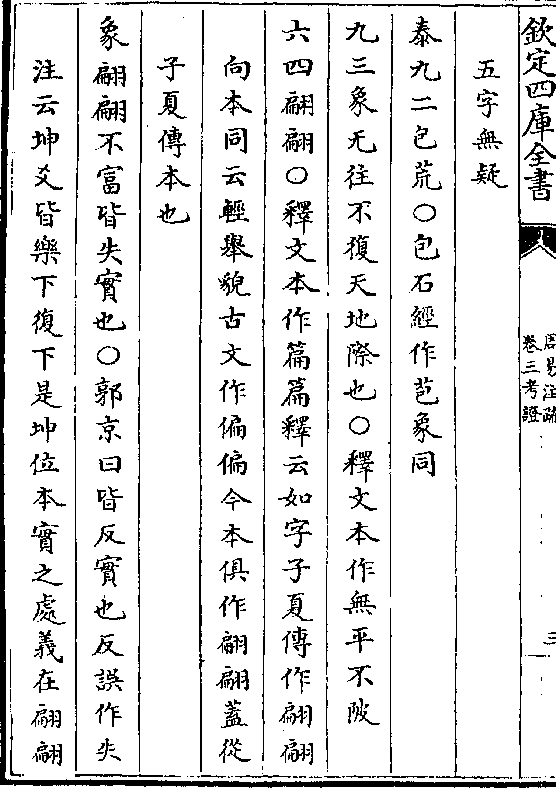 欽定四庫全書
周易注疏
卷三考證
三
五字無疑
泰九二包荒○包石經作苞象同
九三象无往不復天地際也○釋文本作無平不陂
六四翩翩○釋文本作篇篇釋云如字子夏傳作翩翩
向本同云輕舉貌古文作偏偏今本俱作翩翩蓋從
子夏傳本也
象翩翩不富皆失實也○郭京曰皆反實也反誤作失
注云坤爻皆樂下復下是坤位本實之處義在翩翩